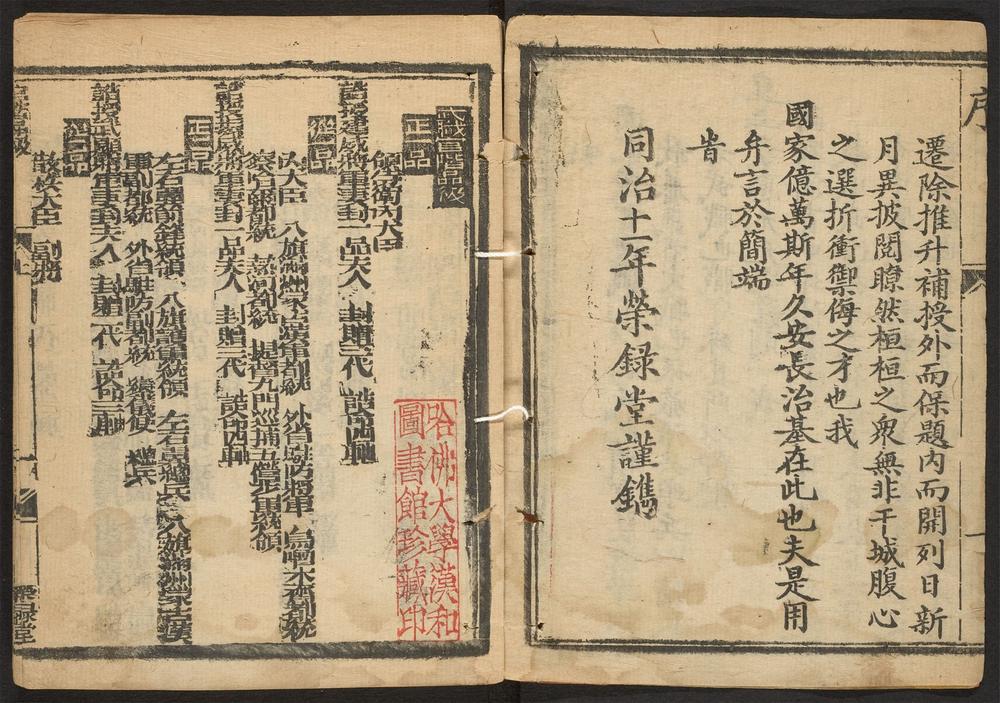 遷除推升補授外而保題內而開列日新
月異披閱瞭然桓桓之衆無非干城腹心
之選折衝禦侮之才也我
國家億萬斯年久安長治基在此也夫是用
弁言於簡端
旹
同治十一年榮録堂謹鐫
序
武職官階品級
正一品
領侍衛內大臣
誥授建威將軍妻封一品夫人 封贈三代 誥命四軸
從一品
內大臣 八旗滿洲蒙古漢軍都統 外省駐防將軍 烏嚕木齊都統
察哈爾都統 熱河都統 提督九門巡捕五營步軍統領
正二品
左右翼前鋒統領 八旗護軍統領 左右翼總兵 八旗滿洲蒙古漢
軍副都統 外省駐防副都統 鑾儀使 總兵
誥授武顯將軍妻封夫人 封贈二代 誥命三軸
從二品
散秩大臣 副將
榮録堂
哈佛大學漢和
圖書館珍藏印